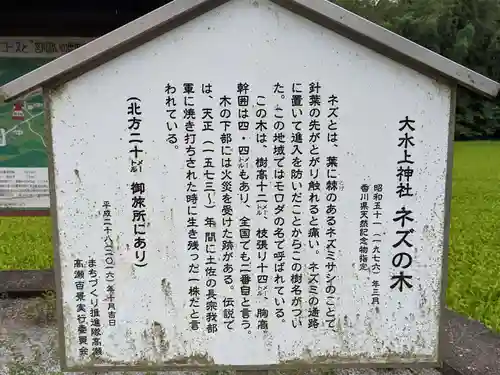 大水上神社 ネズの木
昭和五十一(一九七六)年三月
香川県天然記念物指定
ネズとは、葉に棘のあるネズミサシのことで
針葉の先がとがり触れると痛い。ネズミの通路
に置いて進入を防いだことからこの名がつい
た。この地域ではモロダの名で呼ばれている。
この木は、樹高十二㍍、枝張り十四㍍、胸高
幹囲は四・四㍍もあり、全国でも二番目と言う。
木の下部には火災を受けた跡がある。伝説で
は、天正(一五七三〜)年間に土佐の長宗我部
軍に焼き打ちされた時に生き残った一株だと言
われている。
(北方二十㍍ 御旅所にあり)
平成二十八(二〇一六)年十月吉日
まちづくり推進隊高瀬
高瀬百景実行委員会